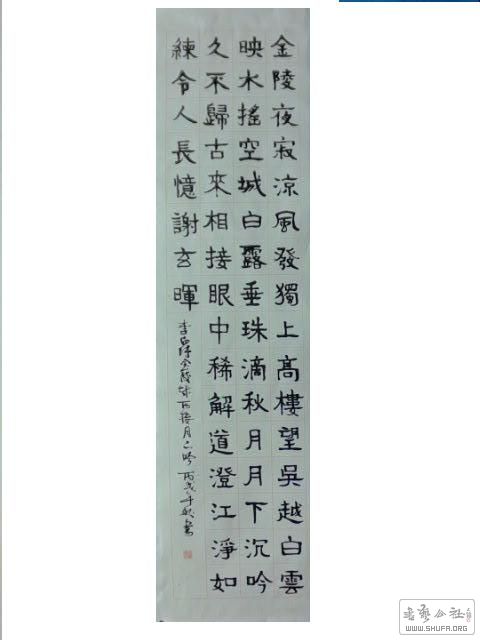 金陵夜寂涼風發獨上高樓望吳越白雲
映水搖空城白露垂珠滴秋月月下沉吟
久不歸古來相接眼中稀解道澄江淨如
練令人長憶謝玄暉
李白詩金陵城西樓月下吟 丙戌年秋書
書藝公社
WWW.SHUFA.ORG